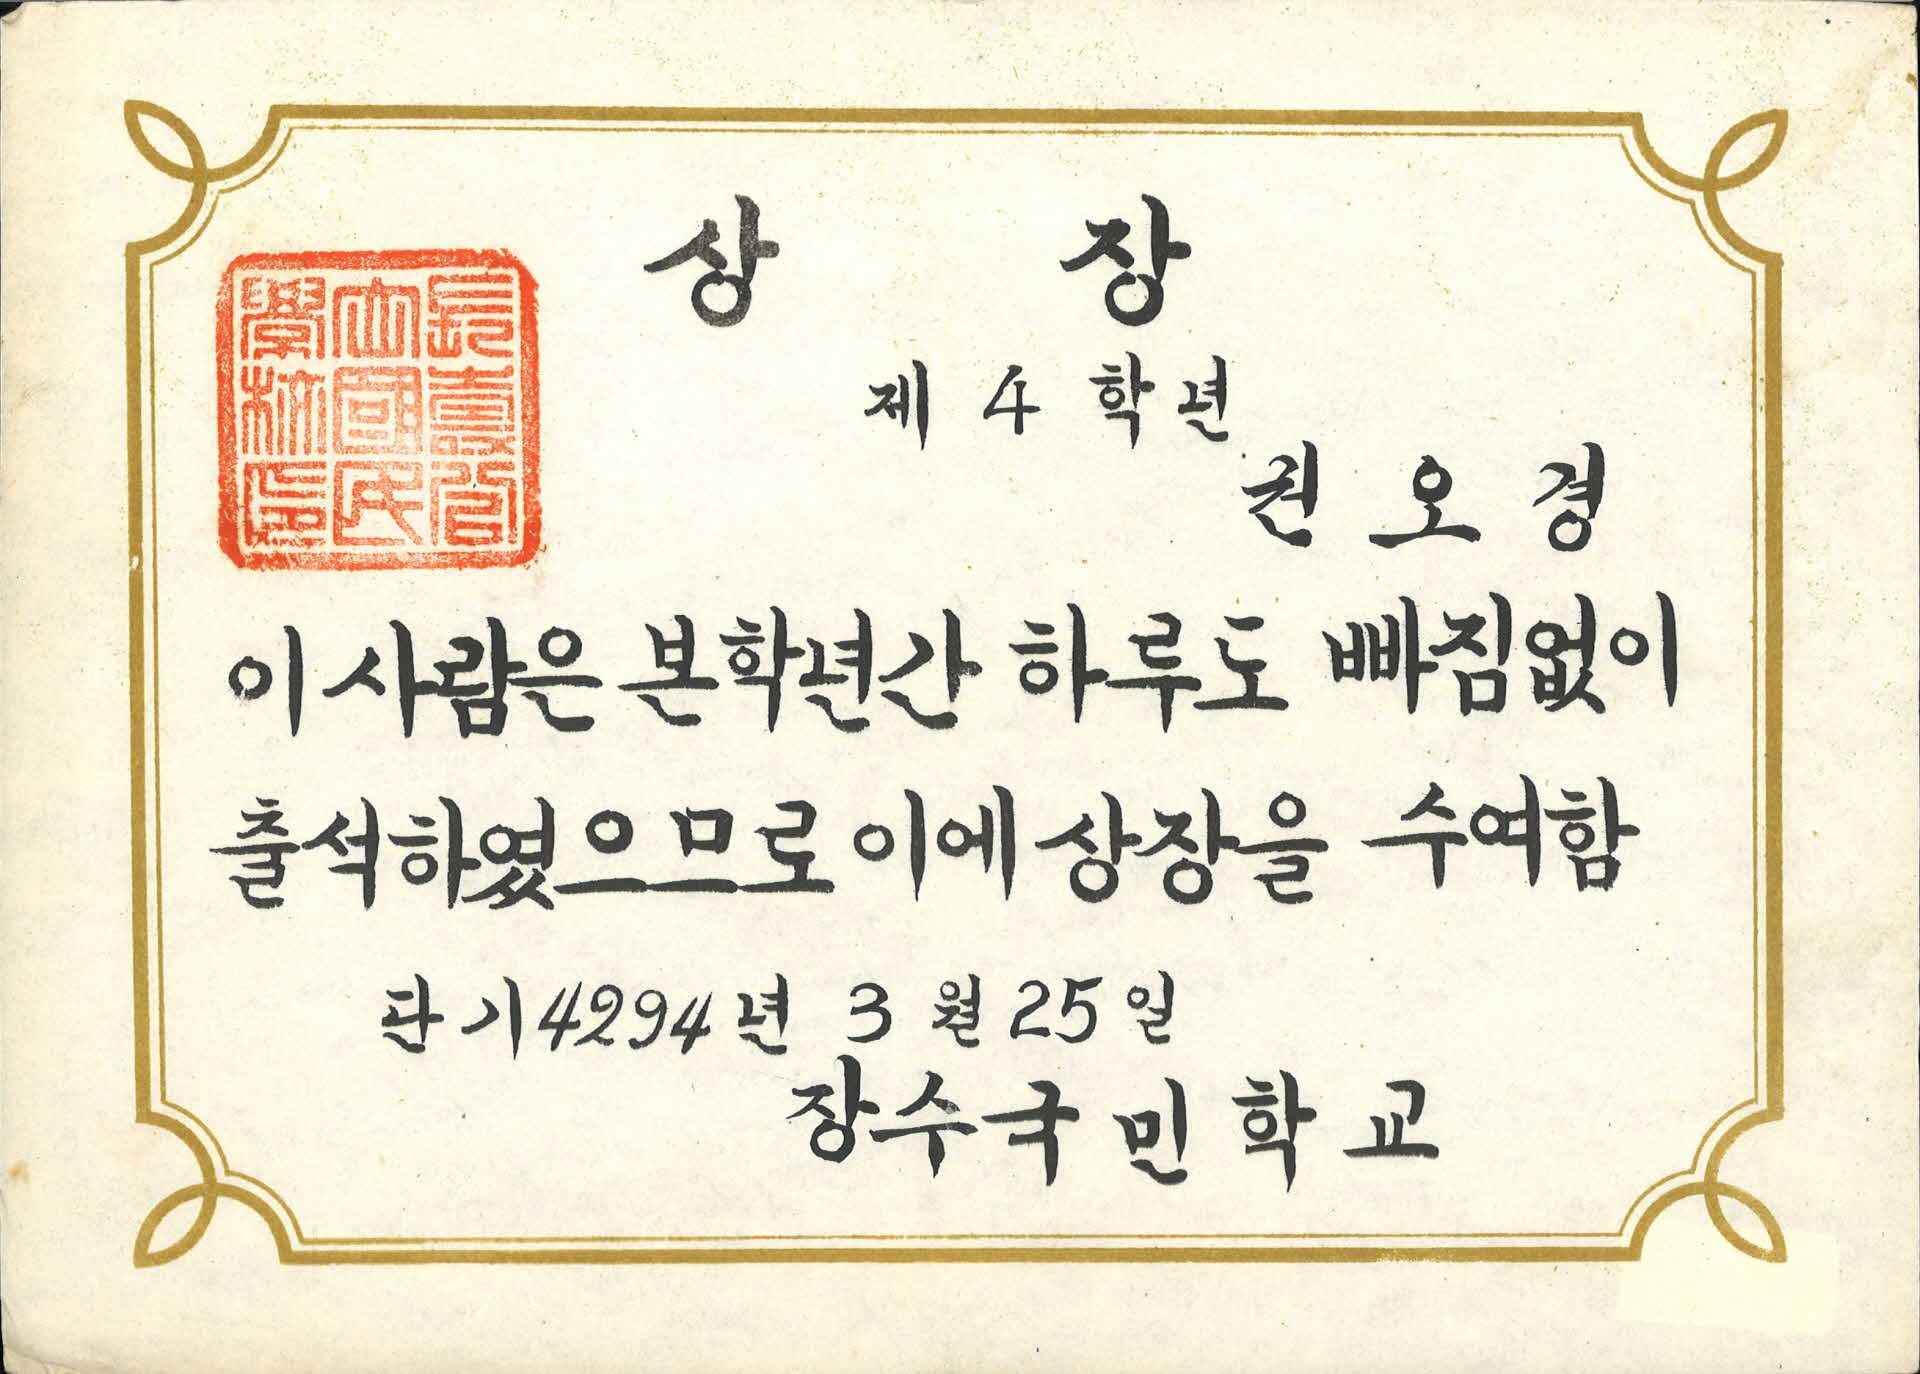 상 장
제 4 학년
권 오 경
이 사람은 본학년간 하루도 빠짐없이
출석하였으므로 이에 상장을 수여함
단기 4294 년 3 월 25 일
장수국민학교